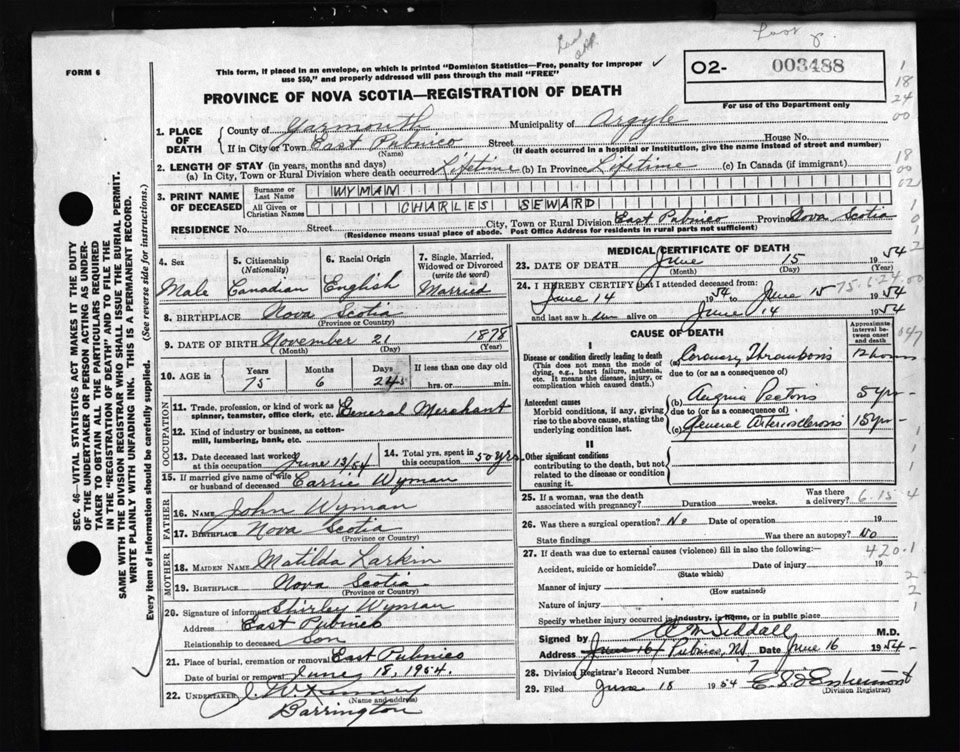 FORM 6
This form, if placed in an envelope, on which is printed "Dominion Statistics—Free, penalty for improper
use $50," and properly addressed will pass through the mail "FREE"
O2- 003488
For use of the Department only
PROVINCE OF NOVA SCOTIA—REGISTRATION OF DEATH
1. PLACE OF DEATH
County of Yarmouth Municipality of Argyle
If in City or Town East Pubnico Street House No.
(Name) (If death occurred in a hospital or institution, give the name instead of street and number)
2. LENGTH OF STAY (in years, months and days)
(a) In City, Town or Rural Division where death occurred Lifetime (b) In Province Lifetime (c) In Canada (if immigrant)
3. PRINT NAME OF DECEASED
Surname or Last Name WYMAN
All Given or Christian Names CHARLES SEWARD
RESIDENCE No. Street City, Town or Rural Division East Pubnico Province Nova Scotia
(Residence means usual place of abode. Post Office Address for residents in rural parts not sufficient)
4. Sex
Male
5. Citizenship (Nationality)
Canadian
6. Racial Origin
English
7. Single, Married, Widowed or Divorced (write the word)
Married
8. BIRTHPLACE Nova Scotia
(Province or Country)
9. DATE OF BIRTH November 21 1878
(Month) (Day) (Year)
10. AGE in Years Months Days If less than one day
75 6 24 hrs. or min.
OCCUPATION
11. Trade, profession, or kind of work as spinner, teamster, office clerk, etc. General Merchant
12. Kind of industry or business, as cotton-mill, lumbering, bank, etc.
13. Date deceased last worked at this occupation June 13/54
14. Total yrs. spent in this occupation 50 yrs
15. If married give name of wife or husband of deceased Carrie Wyman
FATHER
16. NAME John Wyman
17. BIRTHPLACE Nova Scotia
(Province or Country)
MOTHER
18. MAIDEN NAME Matilda Larkin
19. BIRTHPLACE Nova Scotia
(Province or Country)
20. Signature of informant Shirley Wyman
Address East Pubnico
Relationship to deceased Son
21. Place of burial, cremation or removal East Pubnico
Date of burial or removal June 18, 1954.
22. UNDERTAKER J. W. Kenney
(Name and address)
Barrington
MEDICAL CERTIFICATE OF DEATH
23. DATE OF DEATH June 15 1954
(Month) (Day) (Year)
24. I HEREBY CERTIFY that I attended deceased from:
June 14 1954 to June 15 1954
and last saw h im alive on June 14 1954
CAUSE OF DEATH
Approximate interval between onset and death
I
Disease or condition directly leading to death
(This does not mean the mode of dying, e.g., heart failure, asthenia, etc. It means the disease, injury, or complication which caused death.)
(a) Coronary Thrombosis 12 hours
due to (or as a consequence of)
Antecedent causes
Morbid conditions, if any, giving rise to the above cause, stating the underlying condition last.
(b) Angina Pectoris 5 yrs
due to (or as a consequence of)
(c) General Arteriosclerosis 15 yrs
II
Other significant conditions
contributing to the death, but not related to the disease or condition causing it.
25. If a woman, was the death associated with pregnancy? Duration weeks. Was there a delivery?
6.15.4
26. Was there a surgical operation? No Date of operation 19
State findings Was there an autopsy? No
27. If death was due to external causes (violence) fill in also the following:—
420.1
Accident, suicide or homicide? Date of injury 19
(State which)
Manner of injury
(How sustained)
Nature of injury
Specify whether injury occurred in industry, in home, or in public place
Signed by M.D.
Address Pubnico, NS Date June 16 1954
28. Division Registrar's Record Number 7
29. Filed June 18 1954
(Division Registrar)
SEC. 46—VITAL STATISTICS ACT MAKES IT THE DUTY
OF THE UNDERTAKER OR PERSON ACTING AS UNDER-
TAKER TO OBTAIN ALL THE PARTICULARS REQUIRED
IN THE "REGISTRATION OF DEATH" AND TO FILE THE
SAME WITH THE DIVISION REGISTRAR WHO SHALL ISSUE THE BURIAL PERMIT.
WRITE PLAINLY WITH UNFADING INK. THIS IS A PERMANENT RECORD.
Every item of information should be carefully supplied. (See reverse side for instructions.)